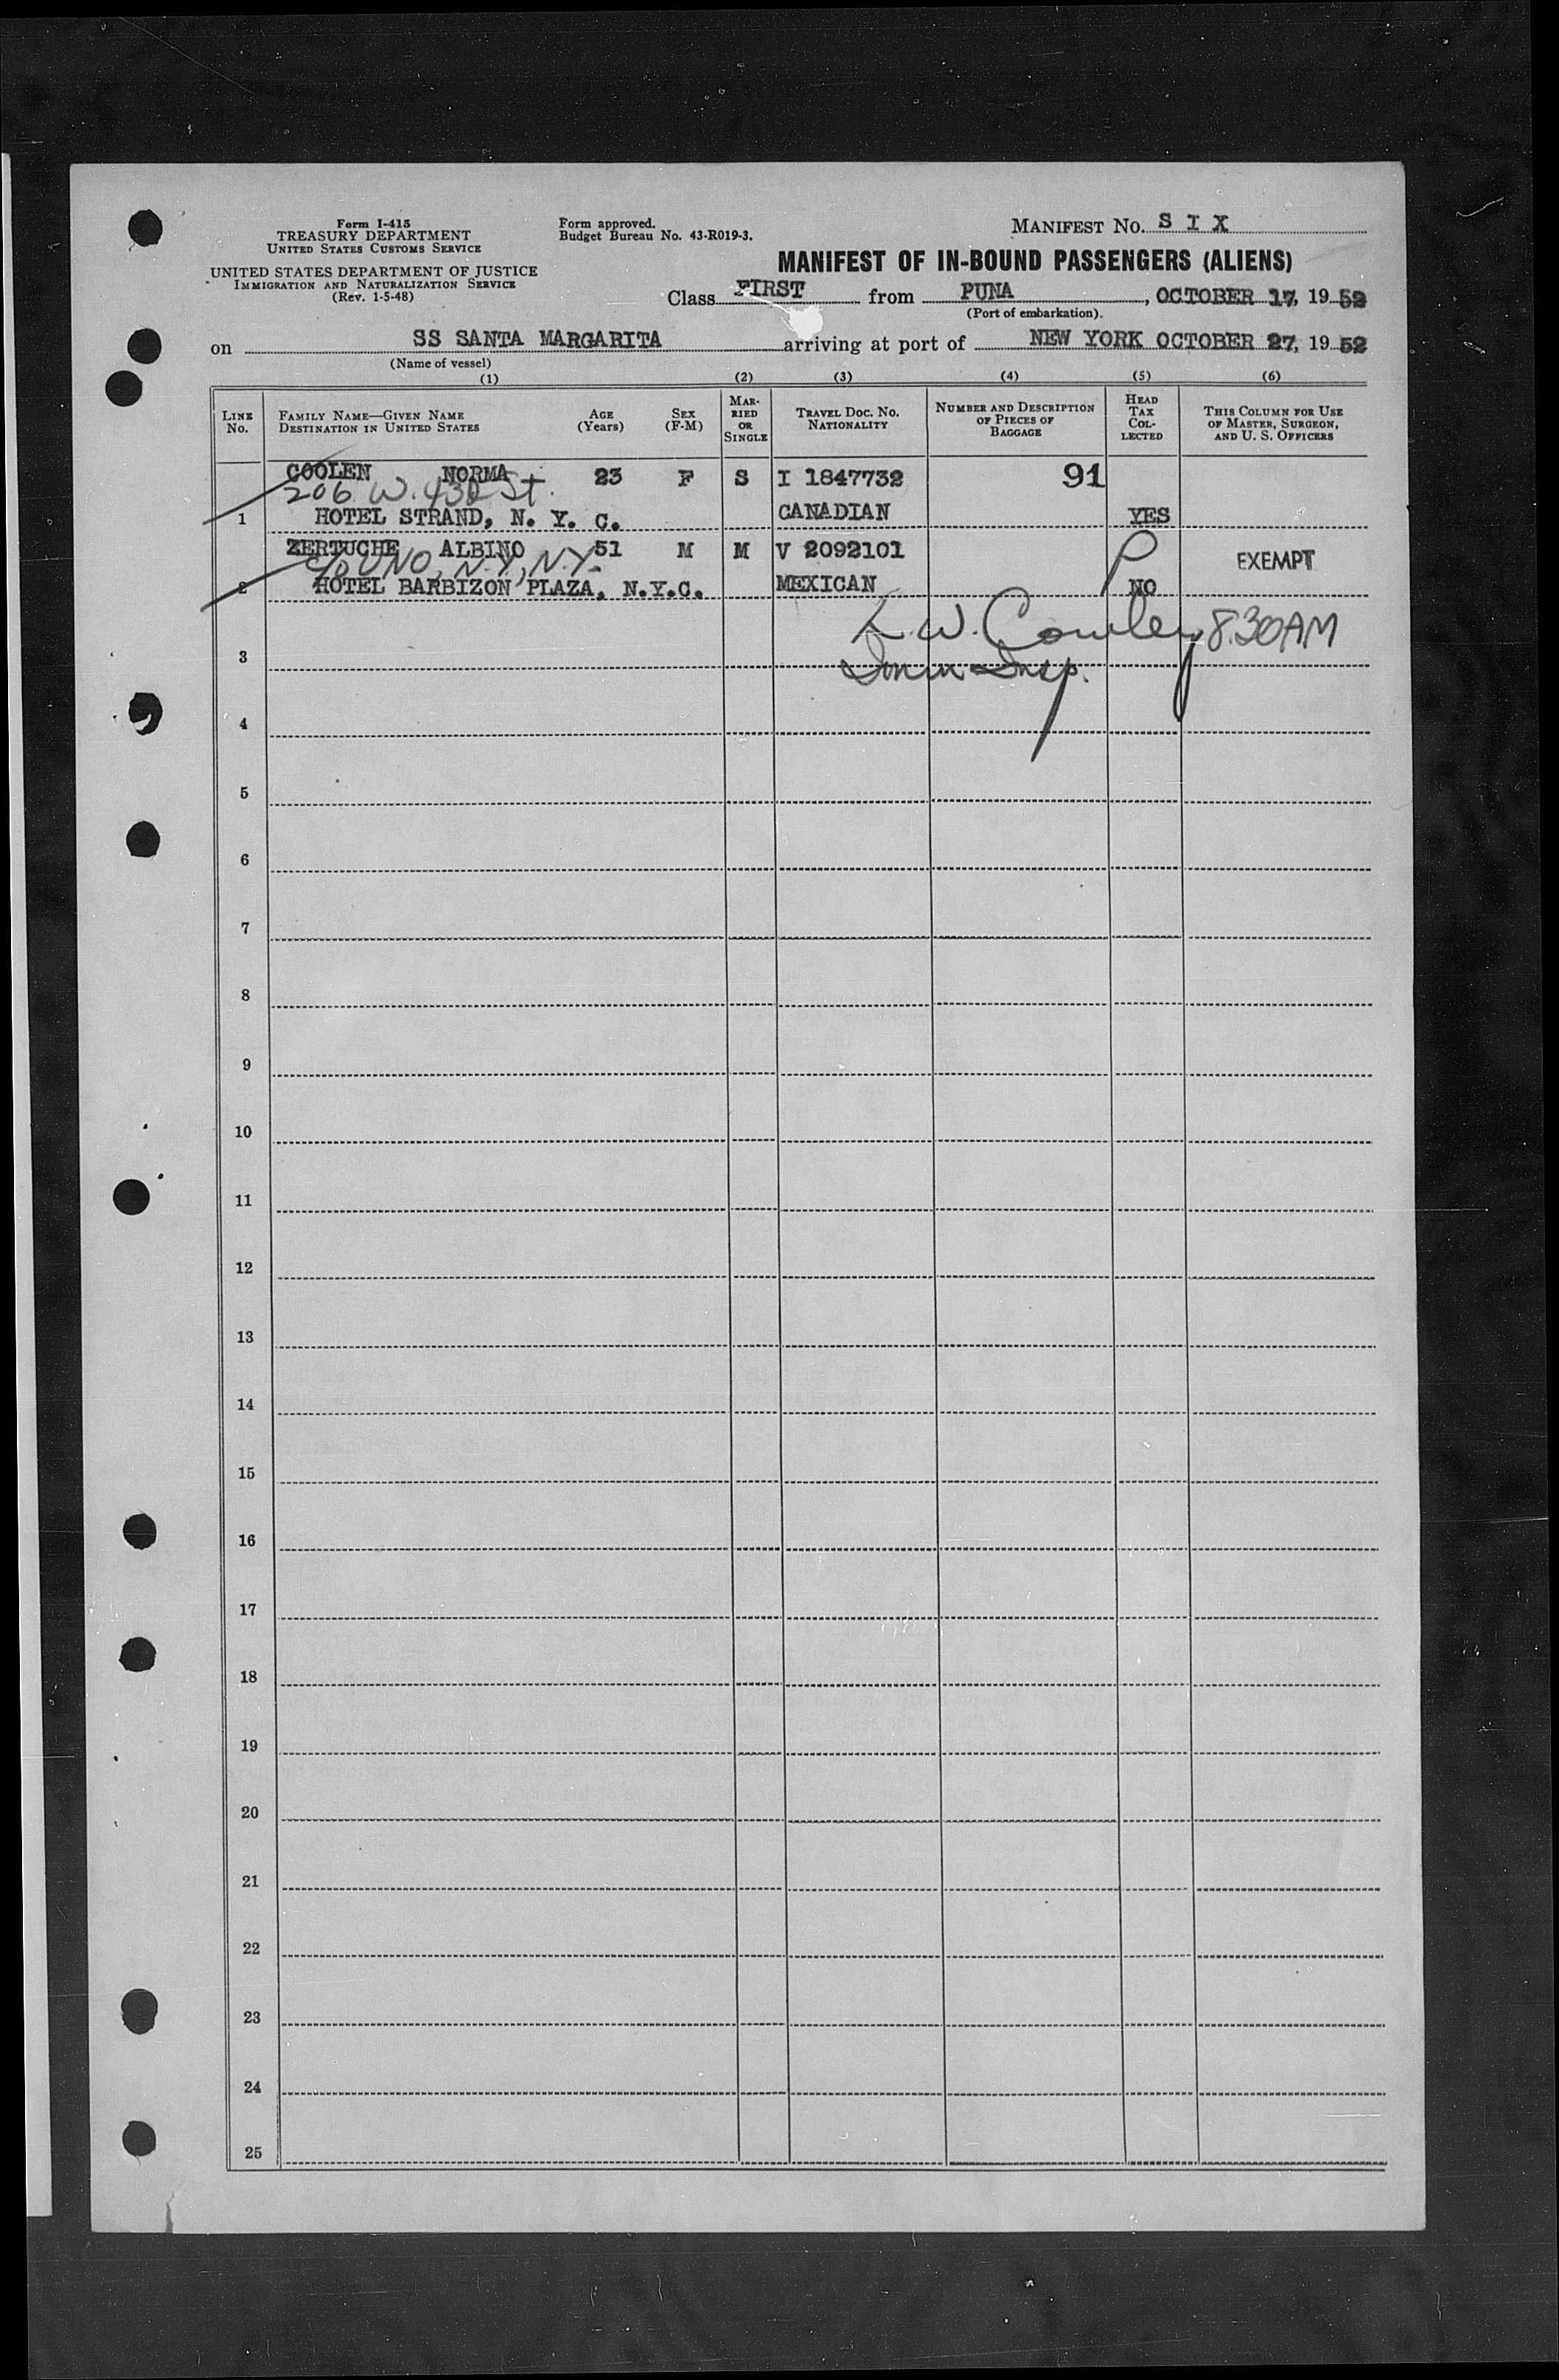 Form I-415
TREASURY DEPARTMENT
UNITED STATES CUSTOMS SERVICE
UNITED STATES DEPARTMENT OF JUSTICE
IMMIGRATION AND NATURALIZATION SERVICE
(Rev. 1-5-48)
Form approved.
Budget Bureau No. 43-R019-3.
MANIFEST NO. S I X
MANIFEST OF IN-BOUND PASSENGERS (ALIENS)
Class FIRST from PUNA, OCTOBER 17, 1952
(Port of embarkation).
on SS SANTA MARGARITA arriving at port of NEW YORK OCTOBER 27, 1952
(Name of vessel)
(1) (2) (3) (4) (5) (6)
LINE NO.
FAMILY NAME—GIVEN NAME
DESTINATION IN UNITED STATES
AGE
(Years)
SEX
(F-M)
MAR-
RIED
OR
SINGLE
TRAVEL DOC. NO.
NATIONALITY
NUMBER AND DESCRIPTION
OF PIECES OF
BAGGAGE
HEAD
TAX
COL-
LECTED
THIS COLUMN FOR USE
OF MASTER, SURGEON,
AND U. S. OFFICERS
COOLEN NORMA 23 F S I 1847732 91
206 W. 43d St.
1 HOTEL STRAND, N. Y. C. CANADIAN YES
ZERTUCHE ALBINO 51 M M V 2092101 P EXEMPT
c/o UNO, N.Y., N.Y.
2 HOTEL BARBIZON PLAZA, N.Y.C. MEXICAN NO
L. W. Cowley 8.30AM
3 Imm Insp.
4
5
6
7
8
9
10
11
12
13
14
15
16
17
18
19
20
21
22
23
24
25